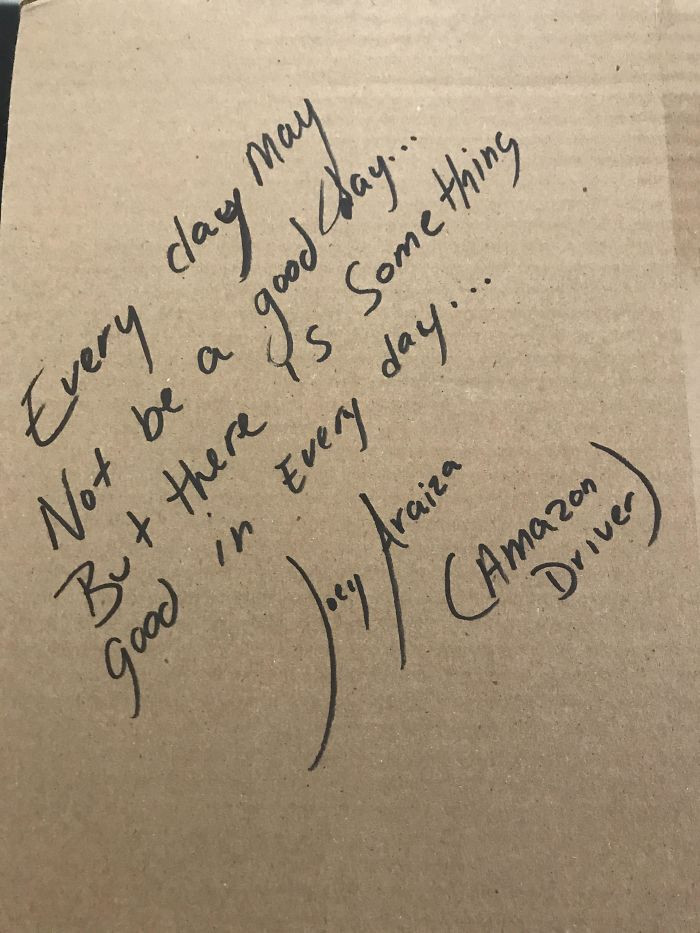 Every day May
Not be a good day...
But there is Something
good in Every day...
Joey Araiza
(Amazon
Driver)